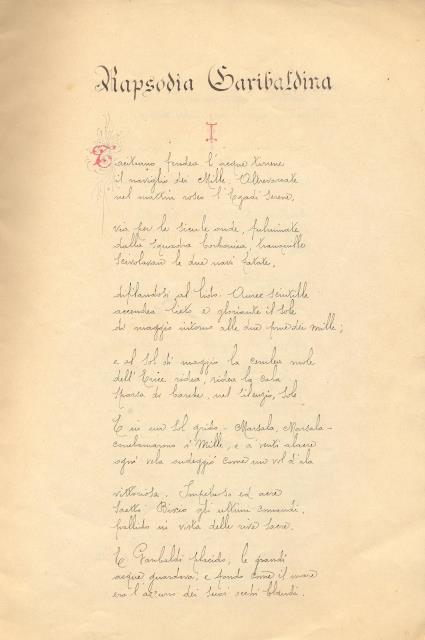 Rapsodia Garibaldina
I
Taciturno fendea l'acque tirrene
il naviglio dei Mille. Oltrevarcate
nel mattin roseo l'Egadi serene,
via per le sicule onde, fulminate
dalla squadra borbonica, tranquille
scivolavan le due navi fatate,
difilandosi al lido. Auree scintille
accendea lieto e gloriante il sole
di maggio intorno alle due prue dei Mille;
e al sol di maggio la cerulea mole
dell'Erice ridea, ridea la cala
sparsa di barche, nel silenzio, sole
E in un sol grido - Marsala, Marsala -
conclamarono i Mille, e a' venti alacre
ogni vela ondeggiò come un vol d'ala
vittoriosa. Impetuoso ed acre
saettò Bixio gli ultimi comandi,
pallido in vista delle rive sacre.
E Garibaldi placido, le grandi
acque guardava; e fondo come il mare
era l'azzurro dei suoi occhi blandi.